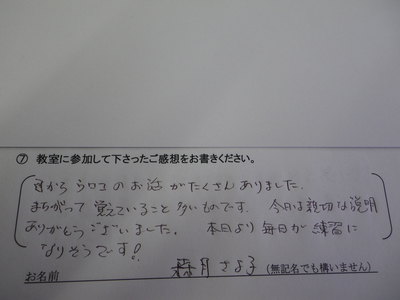 ⑦ 教室に参加して下さったご感想をお書きください。
目からウロコのお話がたくさんありました。
まちがって覚えていること多いものです。今日は親切な説明
ありがとうございました。本日より毎日が練習に
なりそうです!
お名前 森月さよ子 (無記名でも構いません)